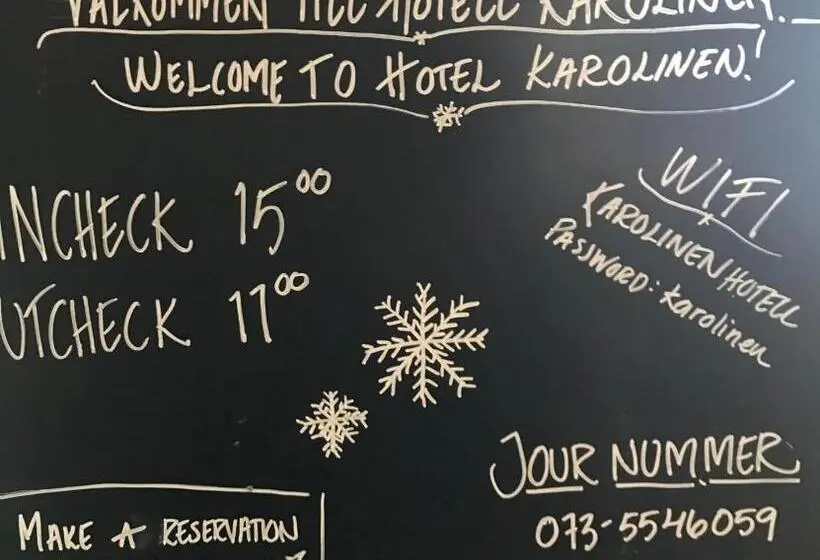 VÄLKOMMEN TILL HOTELL KAROLINEN.
WELCOME TO HOTEL KAROLINEN!
INCHECK 15⁰⁰
UTCHECK 11⁰⁰
WIFI
KAROLINENHOTELL
PASSWORD: karolinen
JOUR NUMMER
073-5546059
MAKE A RESERVATION